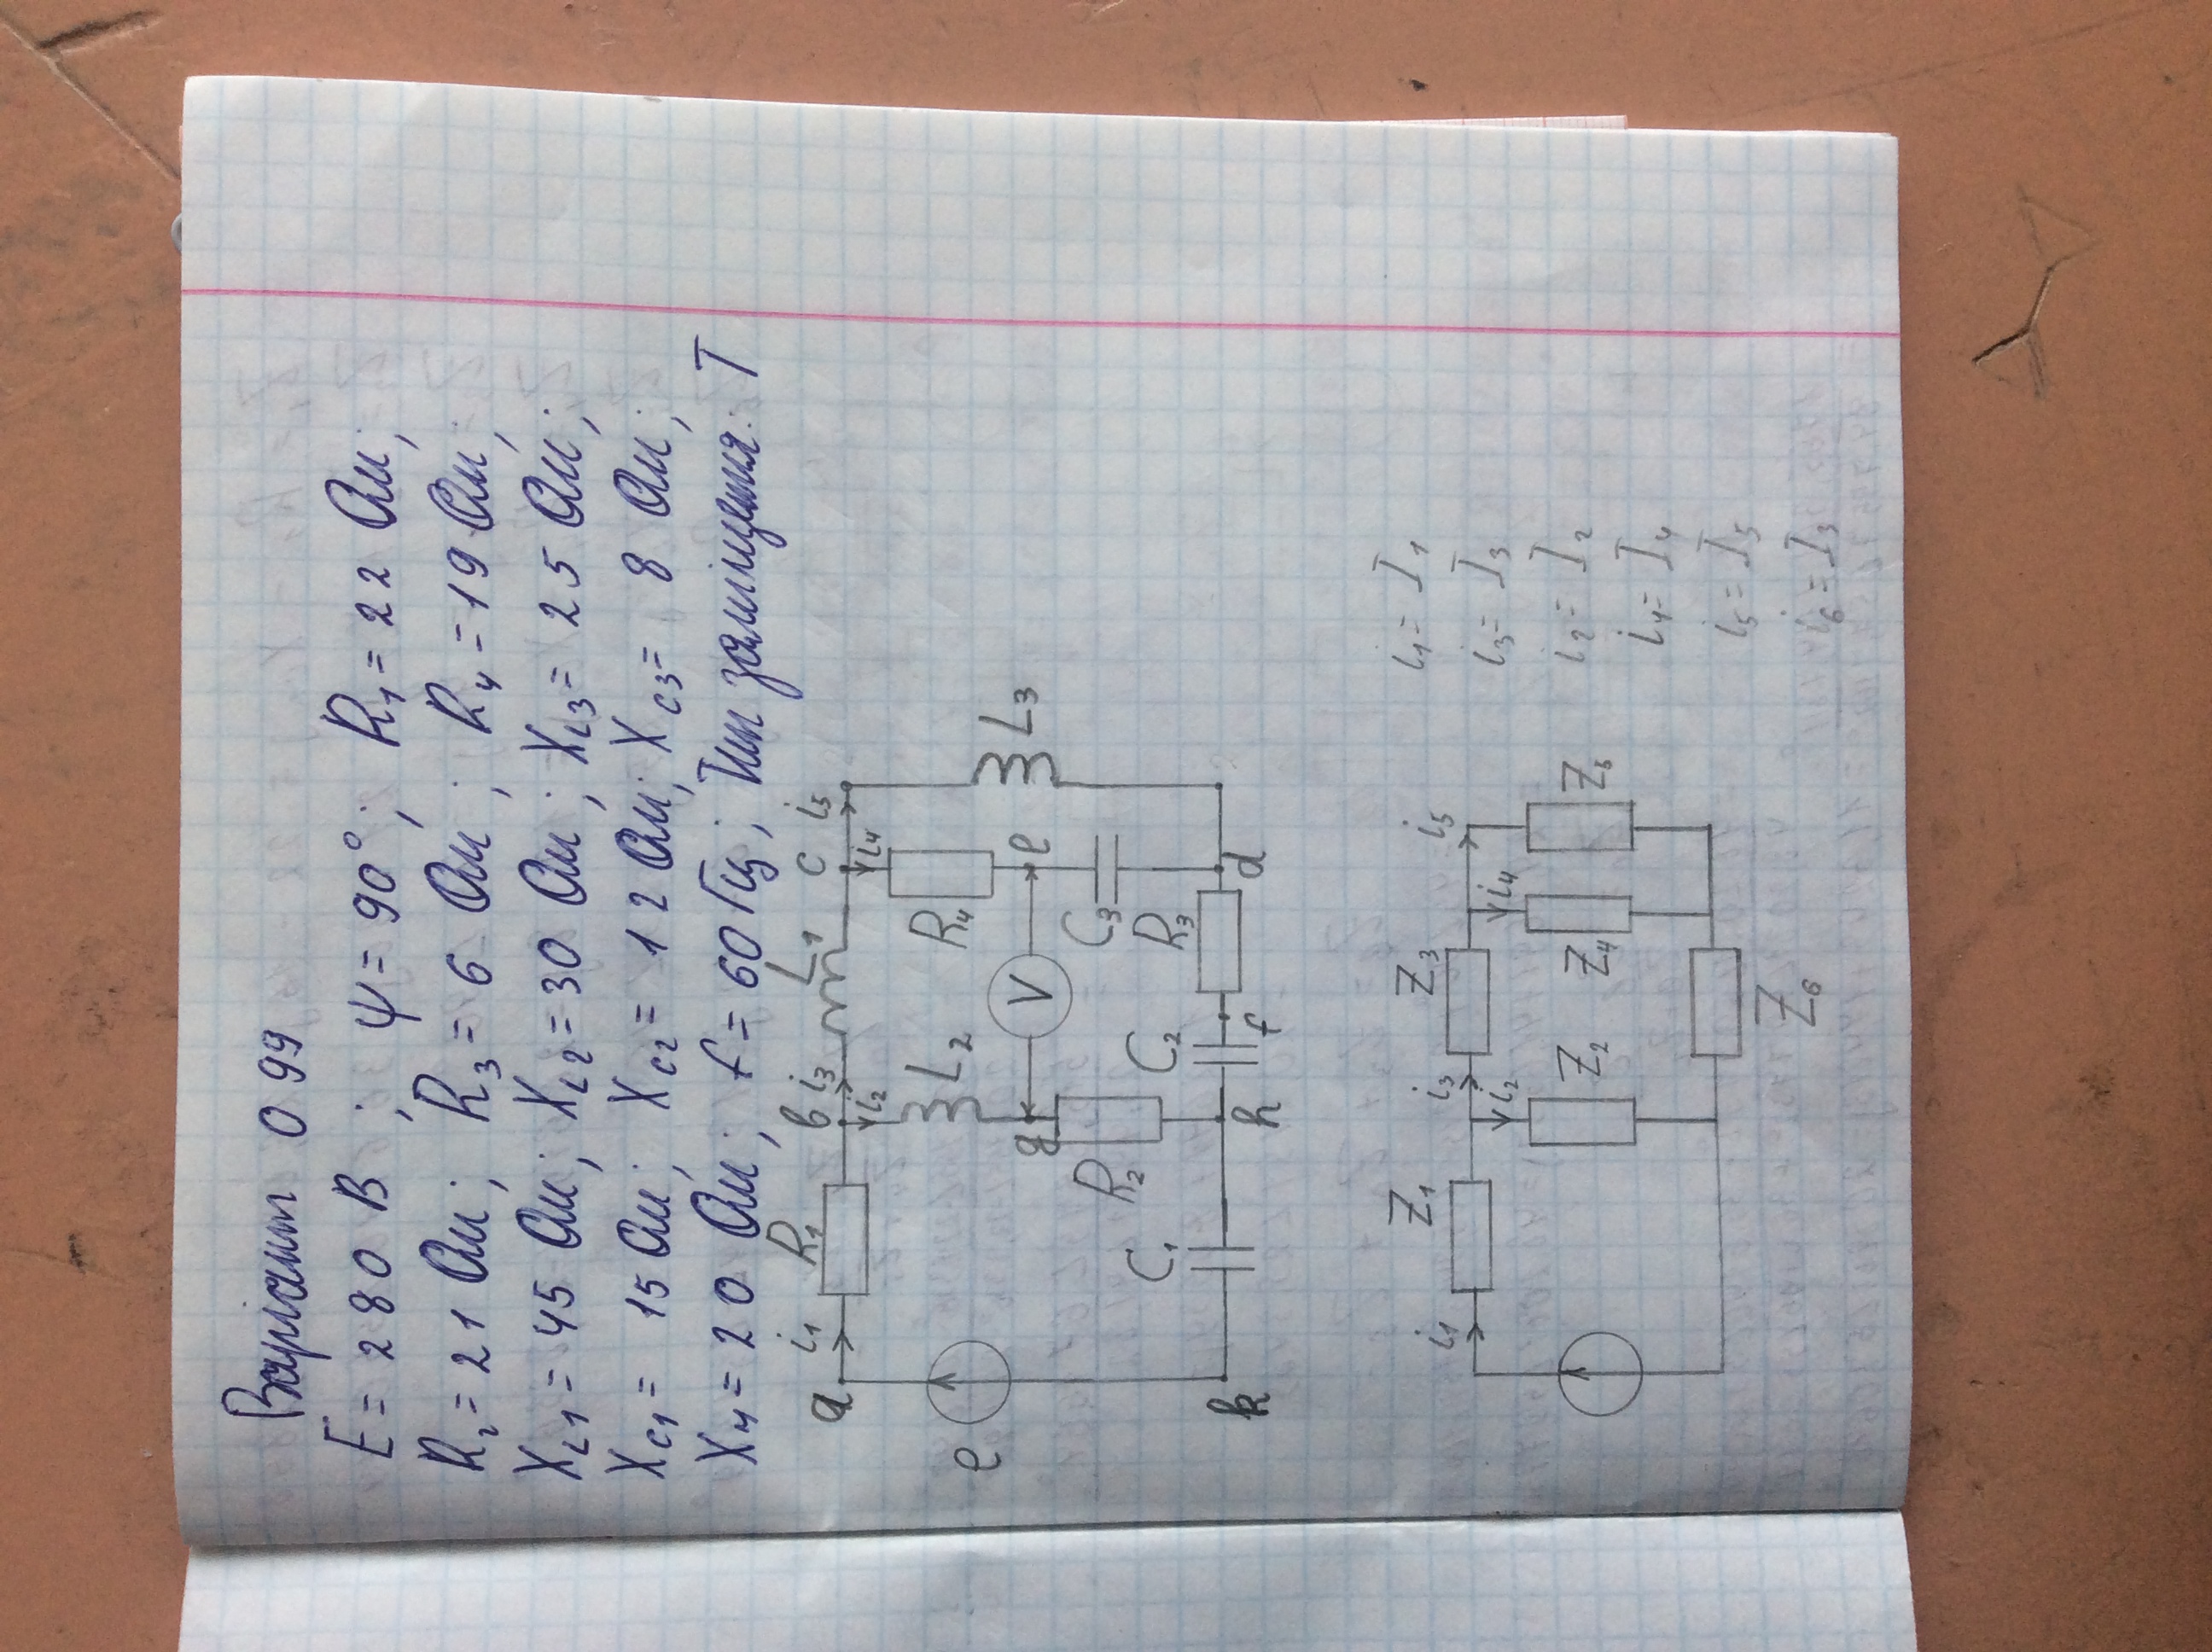 Варіант 099
E = 280 В ; ψ = 90°; R₁ = 22 Ом;
R₂ = 21 Ом; R₃ = 6 Ом ; R₄ = 19 Ом;
X_L1 = 45 Ом; X_L2 = 30 Ом ; X_L3 = 25 Ом;
X_C1 = 15 Ом; X_C2 = 12 Ом; X_C3 = 8 Ом;
X_M = 20 Ом; f = 60 Гц; Тип заміщення: Т
a i₁ R₁ b i₃ L₁ c i₅
i₂ i₄
L₂ R₄
e L₃
g V e
R₂ C₃
C₁ C₂ R₃
k h f d
i₁ Z₁ i₃ Z₃ i₅
i₂ i₄
Z₂ Z₄ Z₅
Z₆
i₁ = I₁
i₃ = I₃
i₂ = I₂
i₄ = I₄
i₅ = I₅
i₆ = I₃